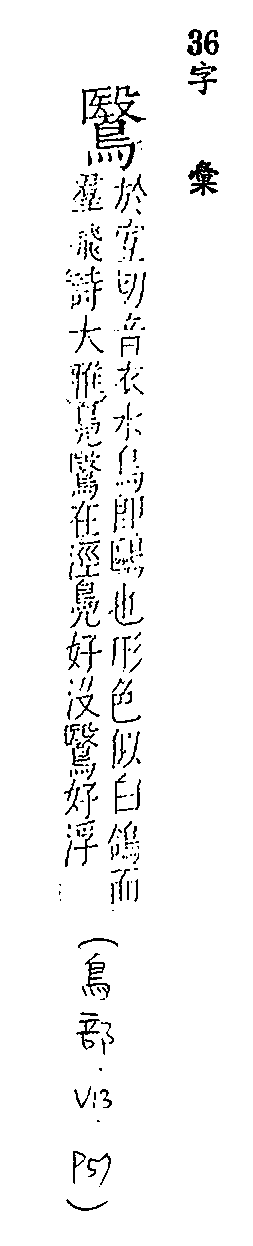 36字彙
鷖
於宜切音衣水鳥即鷗也形色似白鴿而
羣飛詩大雅鳧鷖在涇鳧好沒鷖好浮
(鳥部.V13.P57)